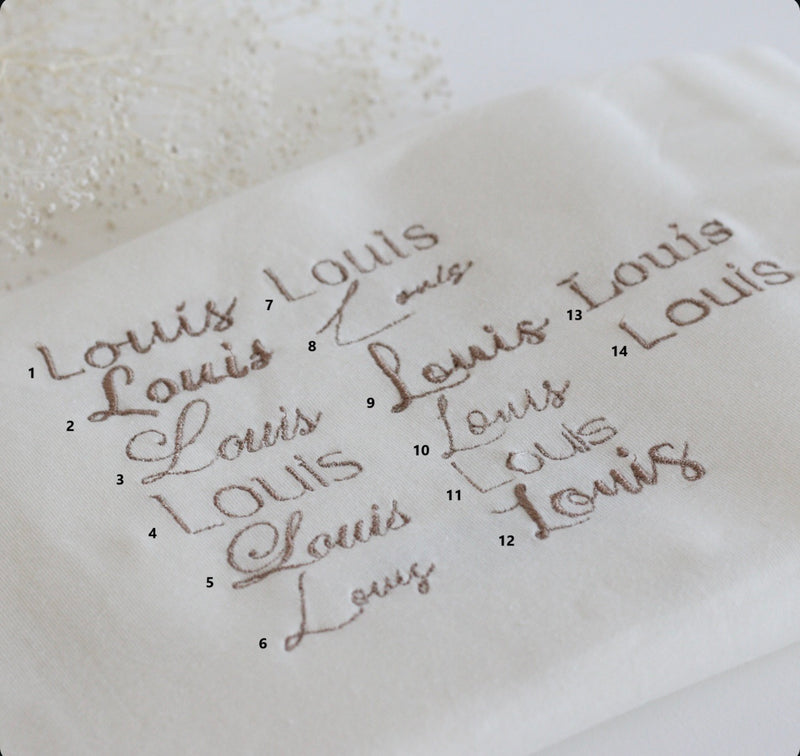 1 Louis
2 Louis
3 Louis
4 Louis
5 Louis
6 Louis
7 Louis
8 Louis
9 Louis
10 Louis
11 Louis
12 Louis
13 Louis
14 Louis